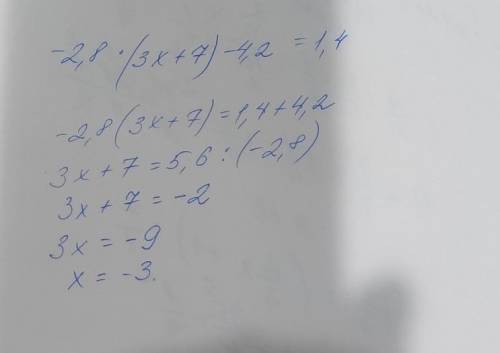 -2,8 · (3x+7) -4,2 = 1,4
-2,8 (3x+7) = 1,4+4,2
3x+7 = 5,6 : (-2,8)
3x+7 = -2
3x = -9
x = -3.